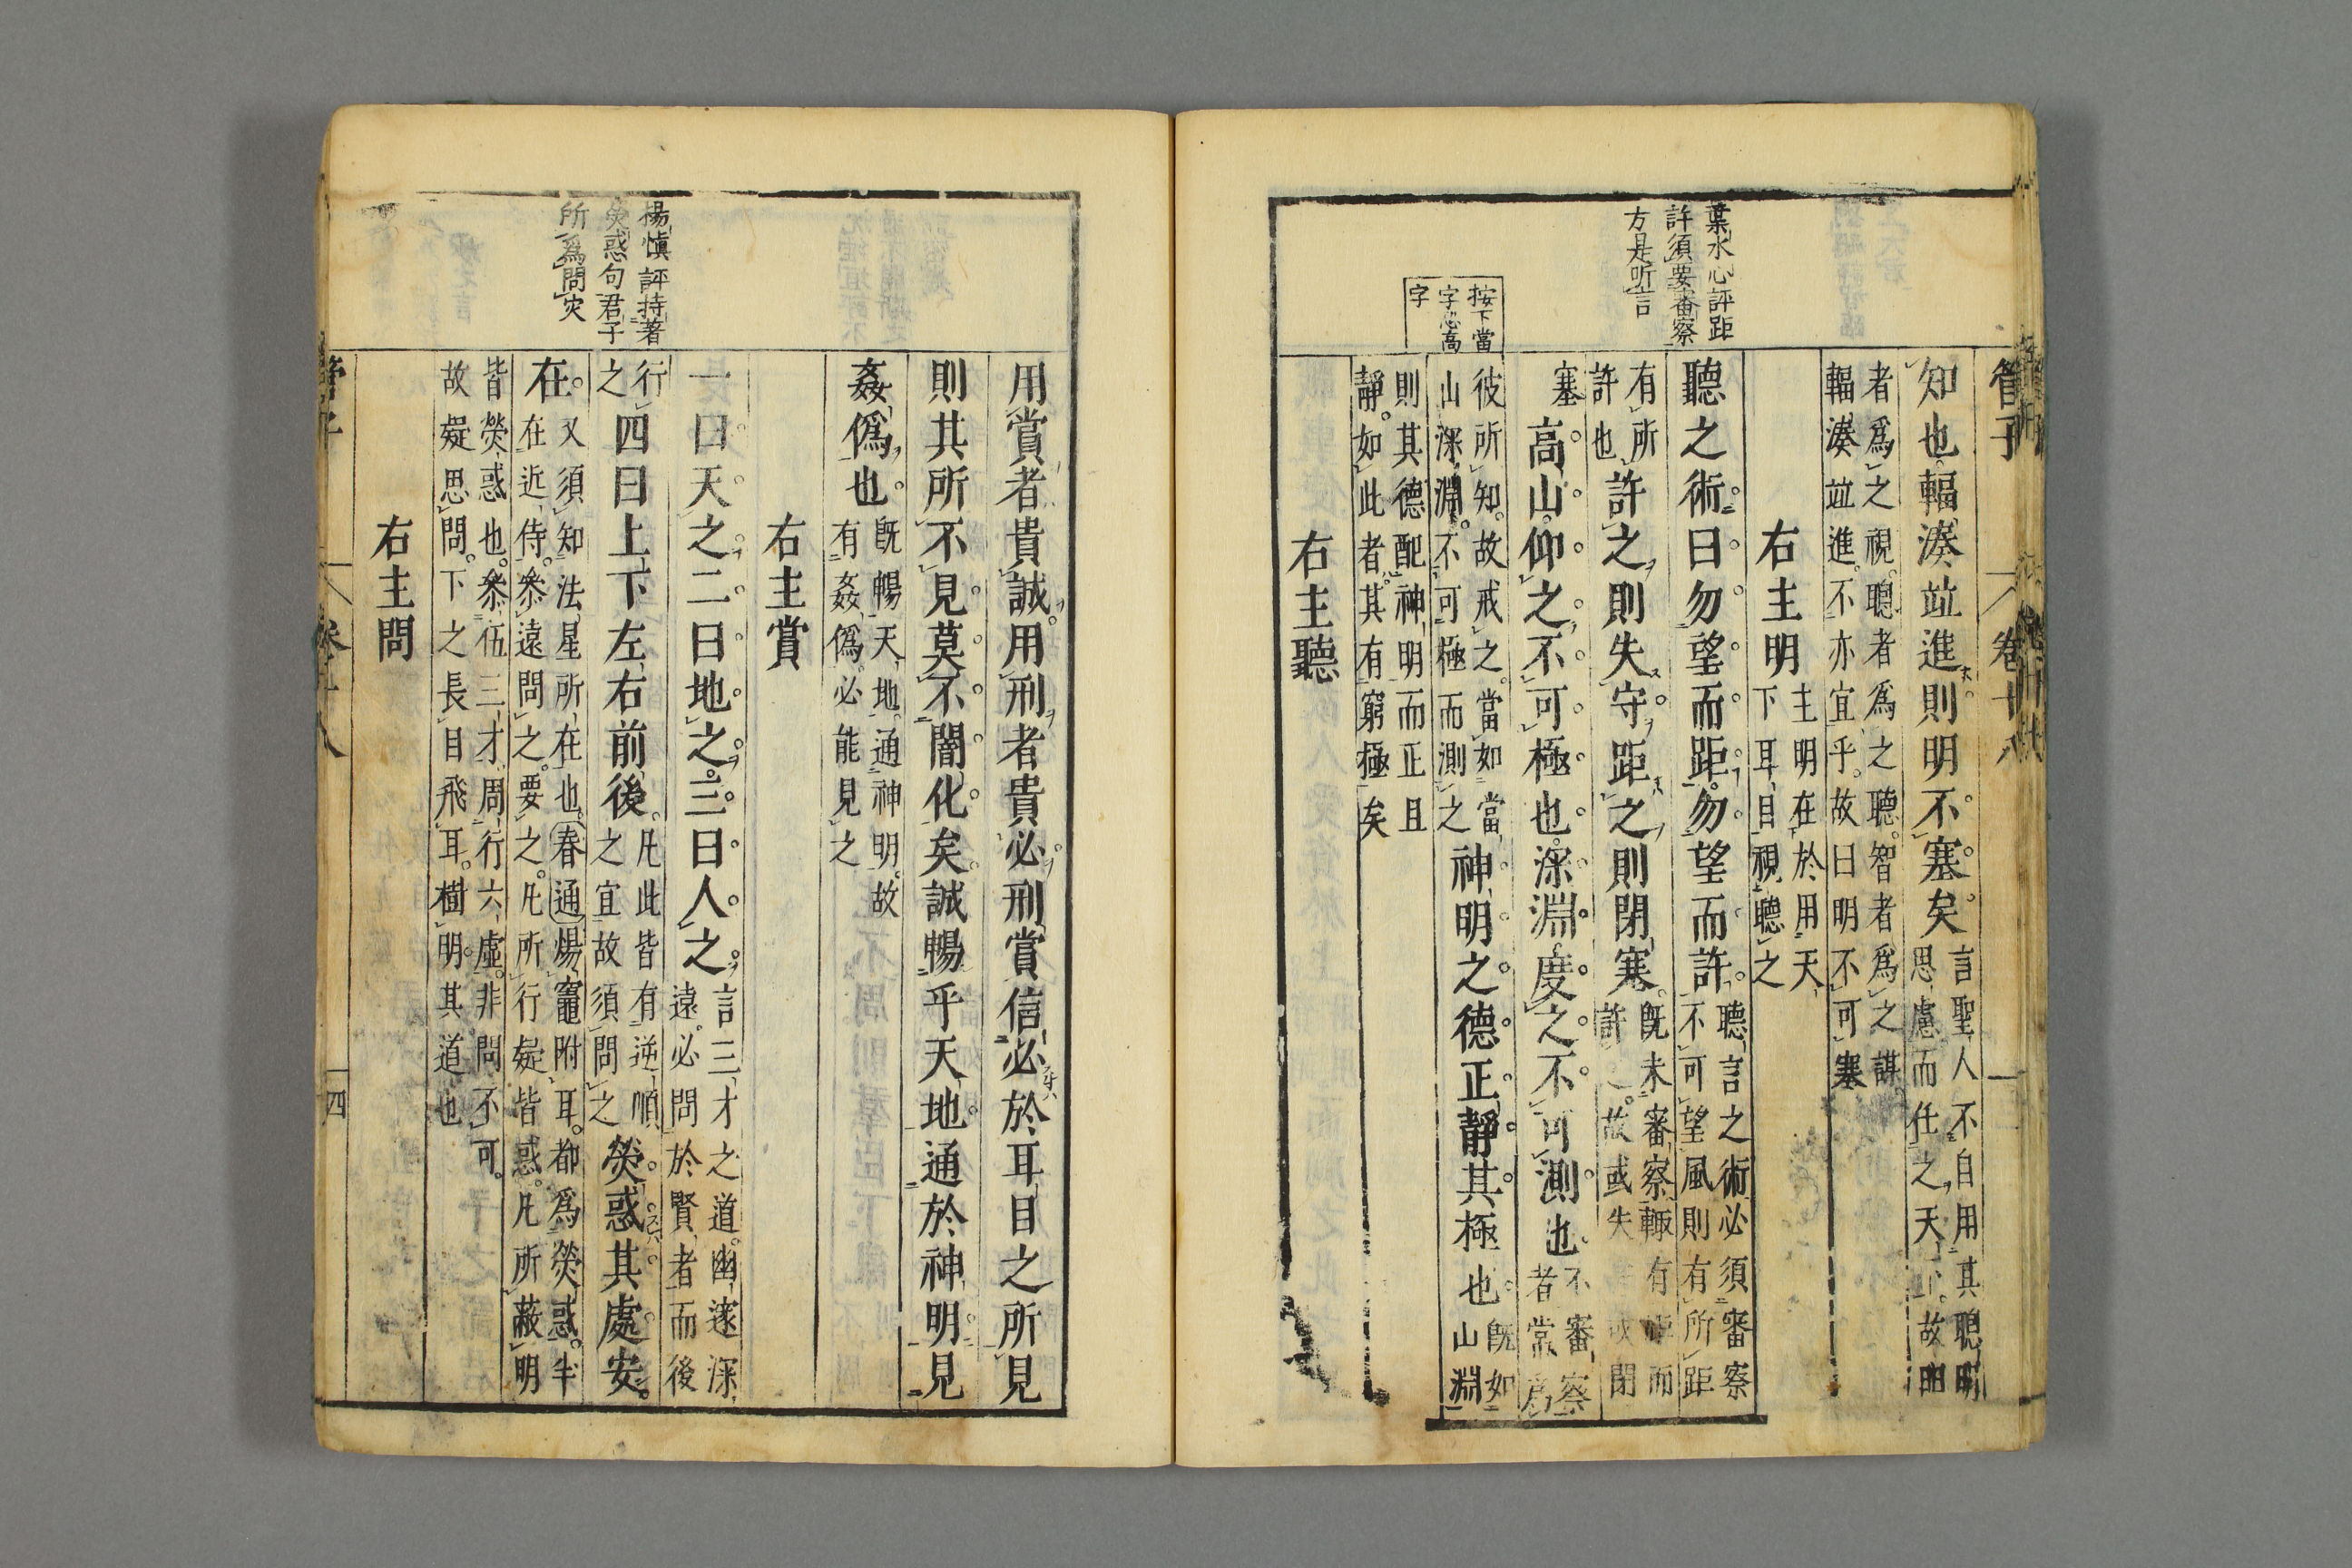 管子
卷十八
知也輻湊竝進則明不塞矣言聖人不自用其聰明
思慮而任之天下故明
者爲之視聰者爲之聽智者爲之謀
輻湊竝進不亦宜乎故曰明不可塞
右主明主明在於用天
下耳目視聽之
聽之術曰勿望而距勿望而許聽言之術必須審察
不可望風則有所距
有所
許也許之則失守距之則閉塞既未審察輙有
許故或失
而閉
塞高山仰之不可極也深淵度之不可測也不審察
者常爲
彼所知故戒之當如當
山深淵不可極而測之神明之德正靜其極也既如
山淵
則其德配神明而正且
靜如此者其有窮極矣
右主聽
葉水心評距
許須要審察
方是听言
按下當
字恐高
字
用賞者貴誠用刑者貴必刑賞信必於耳目之所見
則其所不見莫不闇化矣誠暢乎天地通於神明見
姦僞也既暢天地通神明故
有姦僞必能見之
右主賞
一曰天之二曰地之三曰人之言三才之道幽邃深
遠必問於賢者而後
行
之四曰上下左右前後凡此皆有逆順
之宜故須問之熒惑其處安
在又須知法星所在也春通煬竈附耳都爲熒惑半
在近侍參遠問之要之凡所行疑皆惑凡所蔽明
皆熒惑也參伍三才周行六虛非問不可
故疑思問下之長目飛耳樹明其道也
右主問
楊愼評持著
熒惑句君子
所爲問灾
管子
卷十八
四